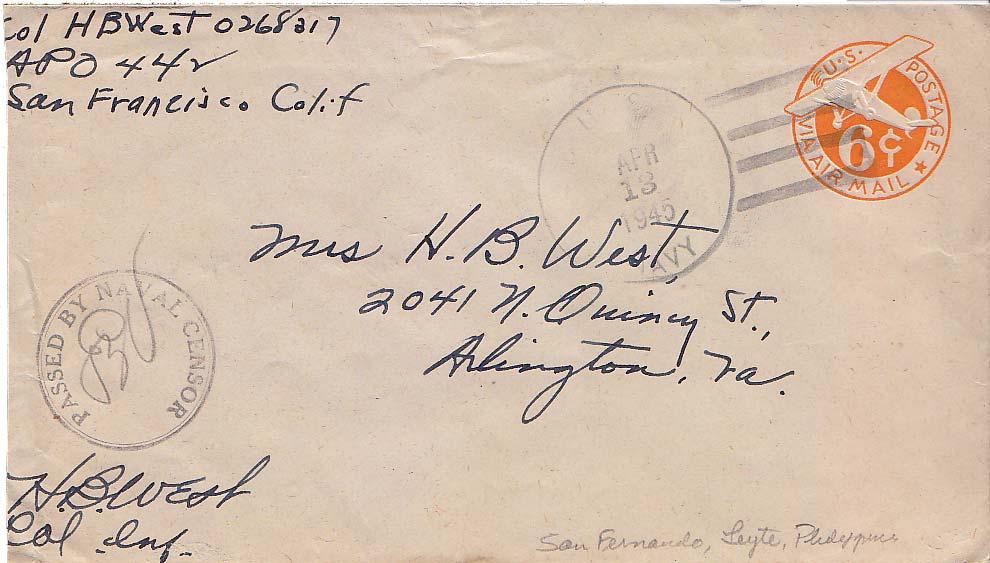 Col H B West 0268317
APO 442
San Francisco Calif
U.S. POSTAGE
VIA AIR MAIL
6¢
APR
13
1945
NAVY
Mrs H. B. West,
2041 N. Quincy St.,
Arlington, Va.
PASSED BY NAVAL CENSOR
H.B. West
Col Inf.
San Fernando, Leyte, Philippines